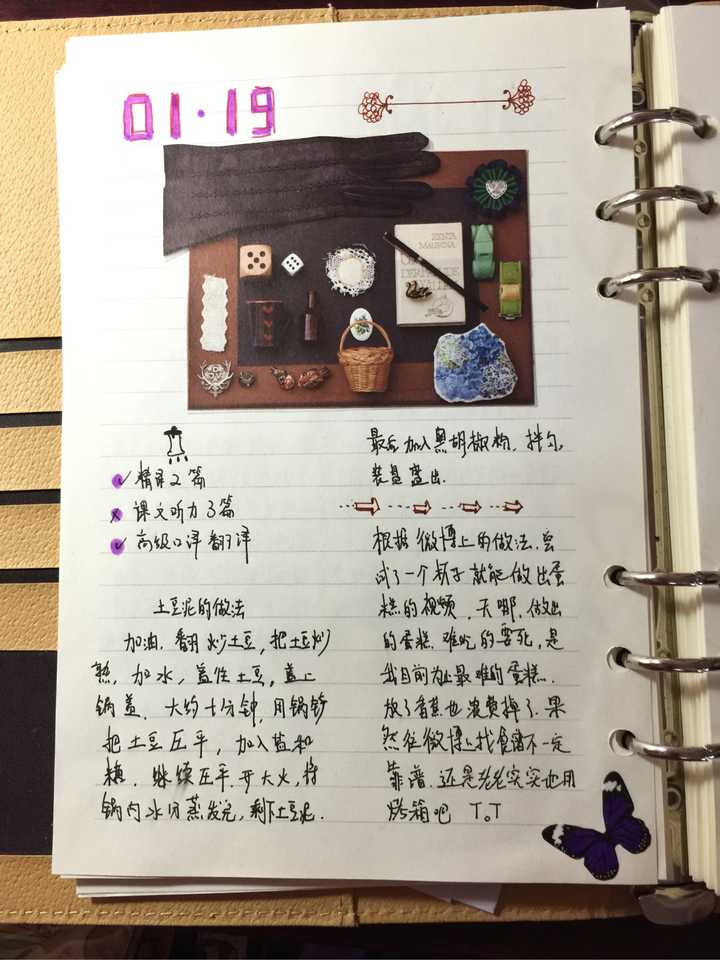 01·19
ZENTA
MAURINA
精译2篇
课文听力3篇
高级口译翻译
土豆泥的做法
加油,翻炒土豆,把土豆炒
熟,加水,盖住土豆,盖上
锅盖,大约十分钟,用锅铲
把土豆压平,加入盐和
糖,继续压平.开大火,将
锅内水分蒸发完,剩下土豆泥.
最后加入黑胡椒粉,拌匀,
装盘盛出.
根据微博上的做法,尝
试了一个杯子就能做出蛋
糕的视频,天哪,做出
的蛋糕难吃的要死,是
我目前为止最难的蛋糕.
放了香蕉也浪费掉了.果
然在微博上找食谱不一定
靠谱,还是老老实实地用
烤箱吧 T。T